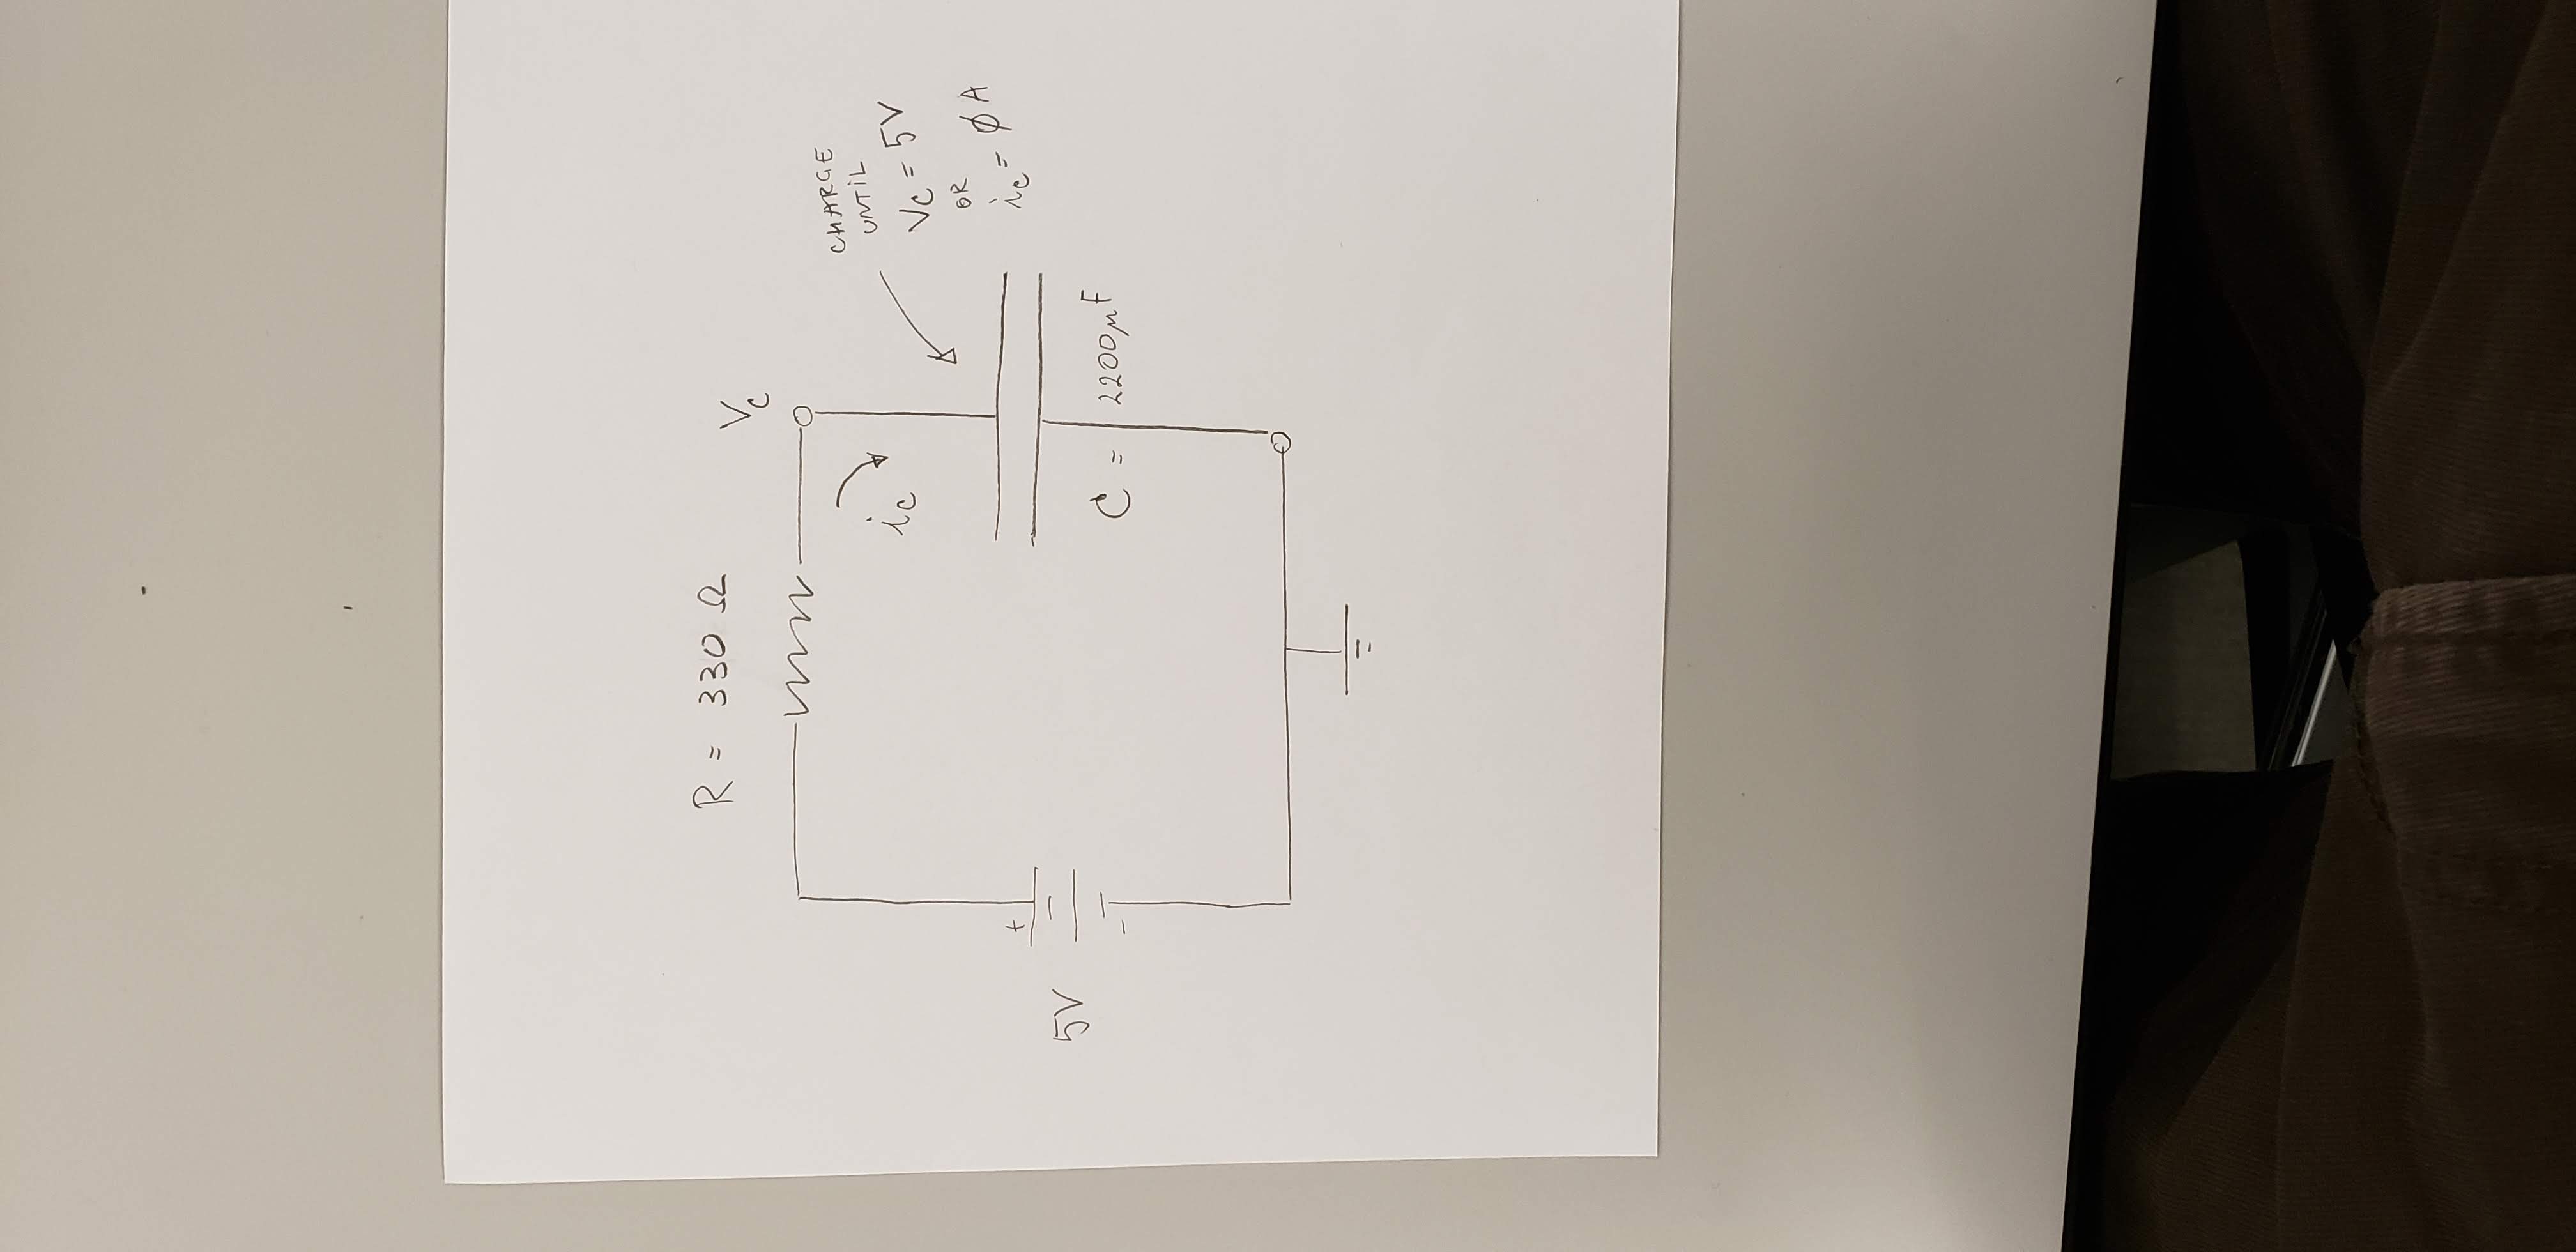 R = 330 Ω
Vc
ic
CHARGE
UNTIL
Vc = 5V
OR
ic = ØA
+
5V
-
C = 2200μF